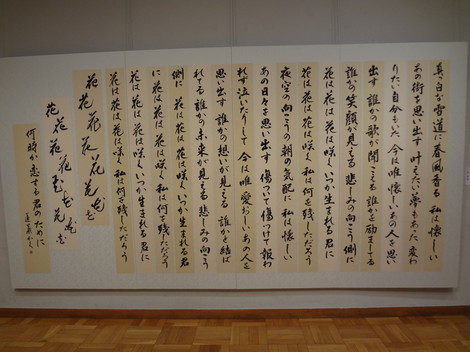 真っ白な雪道に春風香る 私は懐しい
あの街を思い出す 叶えたい夢もあった 変わ
りたい自分もいた 今は唯懐しいあの人を思い
出す 誰かの歌が聞こえる 誰かを励ましてる
誰かの笑顔が見える 悲しみの向こう側に
花は花は花は咲く いつか生まれる君に
花は花は花は咲く 私は何を残しただろう
夜空の向こうの朝の気配に 私は懐しい
あの日々を思い出す 傷ついて傷つけて 報わ
れず泣いたりして 今は唯愛おしいあの人を
思い出す 誰かの想いが見える 誰かと結ば
れてる 誰かの未来が見える 悲しみの向こう
側に 花は花は花は咲く いつか生まれる君
に 花は花は花は咲く 私は何を残しただろう
花は花は花は咲く いつか生まれる君に
花は花は花は咲く 私は何を残しただろう
花花花花花花
花花花花花花花
何時か恋する君のために